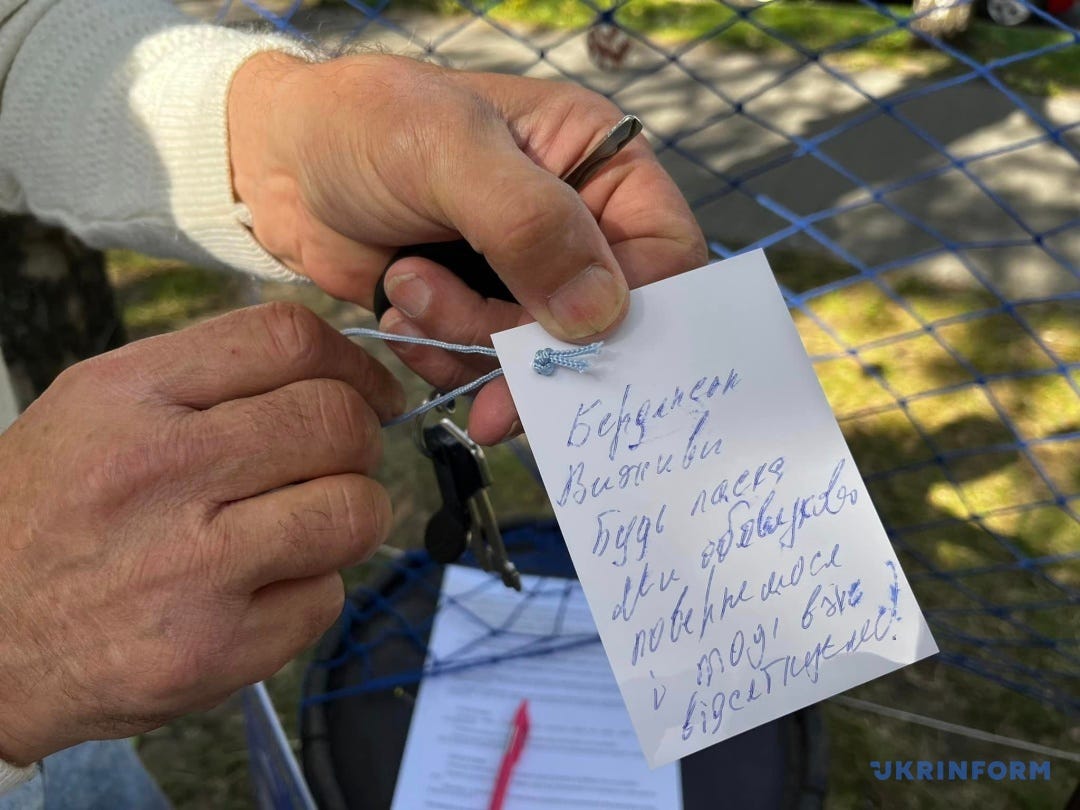 Бердянськ
Виживи
будь ласка
Ми обов'язково
повернемося
і тоді вже
відсвяткуємо!
UKRINFORM